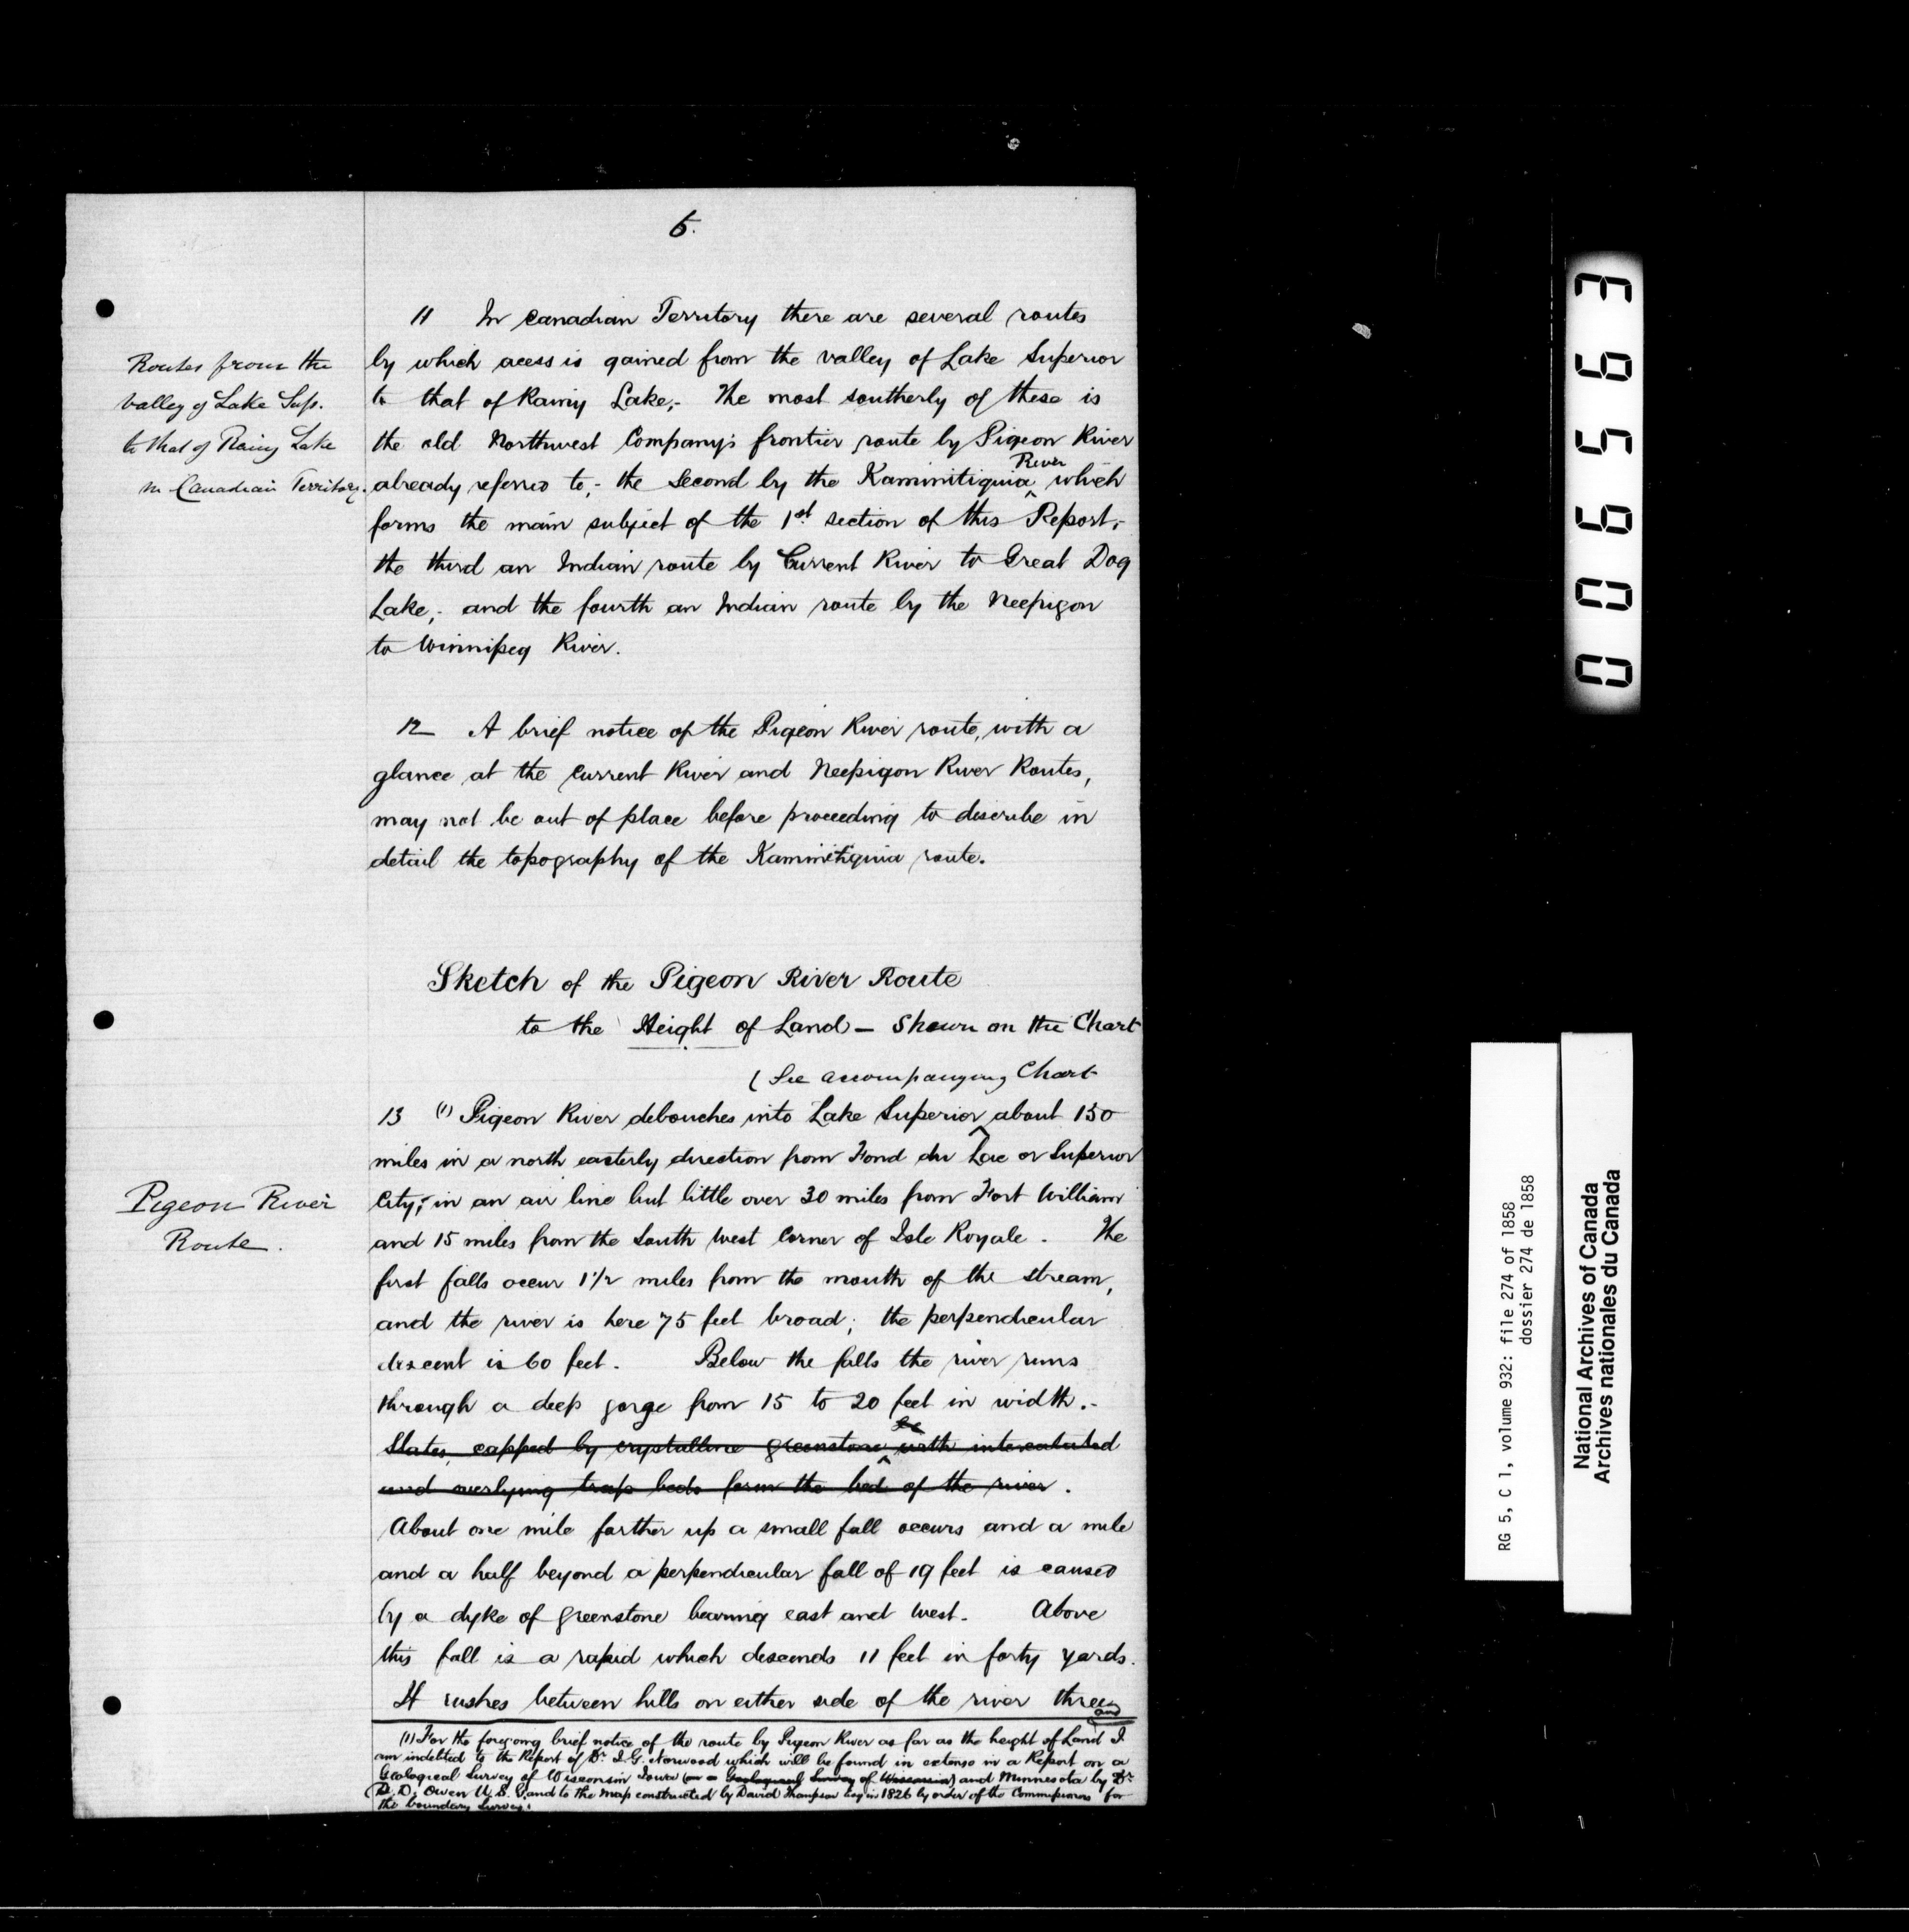 5.
11 In Canadian Territory there are several routes
by which acess is gained from the valley of Lake Superior
to that of Rainy Lake;- The most southerly of these is
the old Northwest Company's frontier route by Pigeon River
River
already referred to;- the second by the Kaminitiquia ^ which
forms the main subject of the 1st section of this Report;-
the third an Indian route by Current River to Great Dog
Lake; and the fourth an Indian route by the Neepigon
to Winnipeg River.
Routes from the
Valley of Lake Sup.
to that of Rainy Lake
in Canadian Territory.
12 A brief notice of the Pigeon River route, with a
glance at the Current River and Neepigon River Routes,
may not be out of place before proceeding to describe in
detail the topography of the Kaminitiquia route.
Sketch of the Pigeon River Route
to the Height of Land - Shewn on the Chart
( See accompanying Chart
13 (1) Pigeon River debouches into Lake Superior ^ about 150
miles in a north easterly direction from Fond du Lac or Superior
City; in an air line but little over 30 miles from Fort William
and 15 miles from the South West Corner of Isle Royale. The
first falls occur 1 1/2 miles from the mouth of the stream,
and the river is here 75 feet broad; the perpendicular
descent is 60 feet. Below the falls the river runs
through a deep gorge from 15 to 20 feet in width.-
Slates, capped by crystalline greenstone ^ with intercalated
and overlying trap beds form the bed of the river.
About one mile farther up a small fall occurs and a mile
and a half beyond a perpendicular fall of 19 feet is caused
by a dyke of greenstone bearing east and west. Above
this fall is a rapid which descends 11 feet in forty yards.
It rushes between hills on either side of the river three
and
Pigeon River
Route.
(1) For the foregoing brief notice of the route by Pigeon River as far as the height of Land I
am indebted to the Report of Dr. I. G. Norwood which will be found in extenso in a Report on a
Geological Survey of Wisconsin Iowa (or a Geological Survey of Wisconsin) and Minnesota by Dr
D. D. Owen U. S. G. and to the map constructed by David Thompson in 1826 by order of the Commissioners for
the boundary Survey.
006563
RG 5, C 1, volume 932: file 274 of 1858
dossier 274 de 1858
National Archives of Canada
Archives nationales du Canada